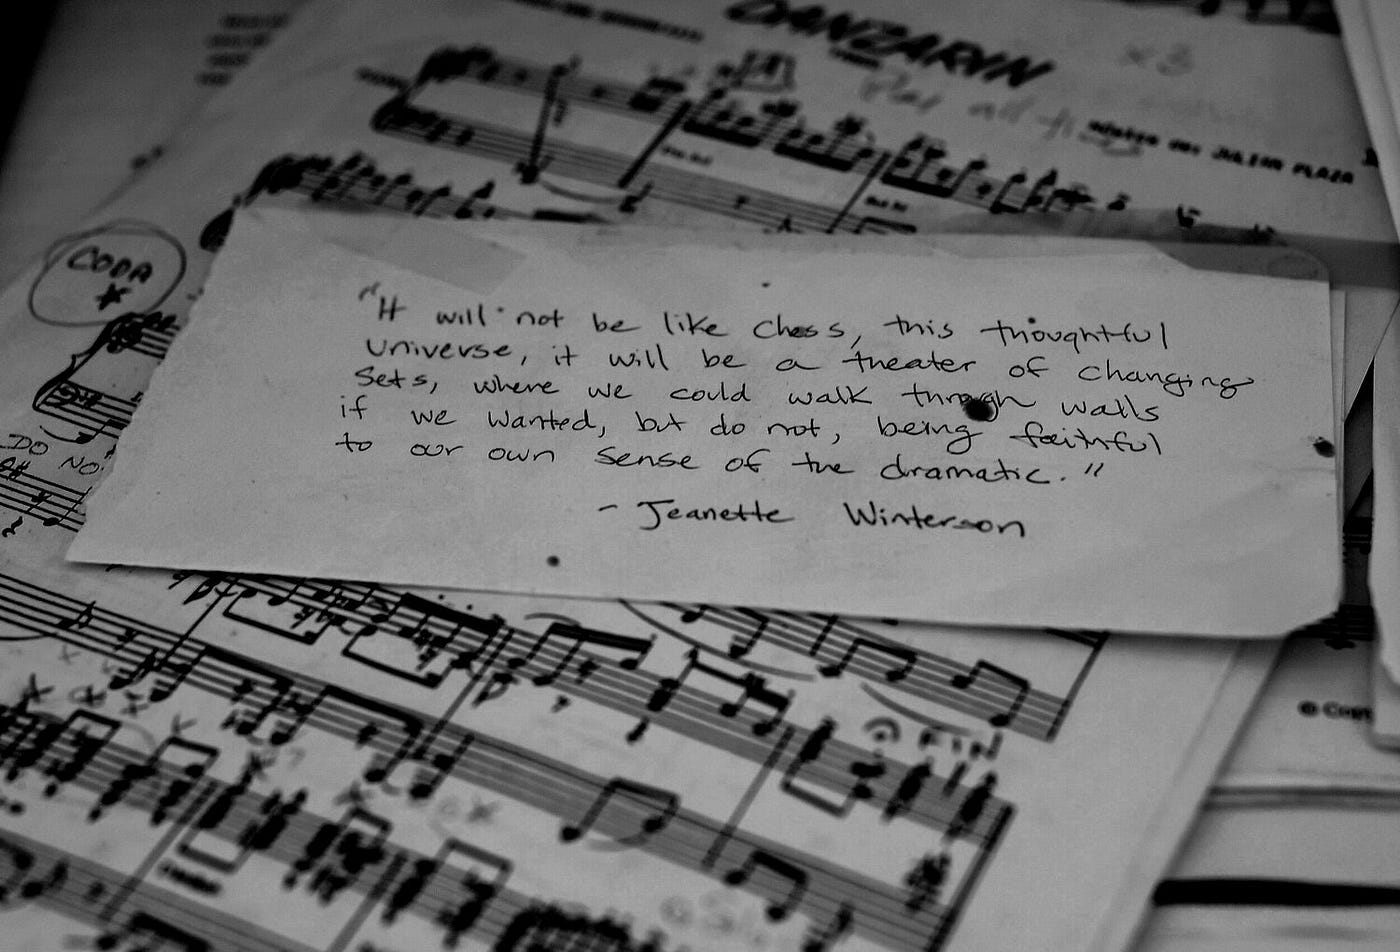 DANZARIN
x3
Play all
JULIAN PLAZA
CODA
"It will not be like chess, this thoughtful
universe, it will be a theater of changing
sets, where we could walk through walls
if we wanted, but do not, being faithful
to our own sense of the dramatic."
- Jeanette Winterson
DO NO
FIN